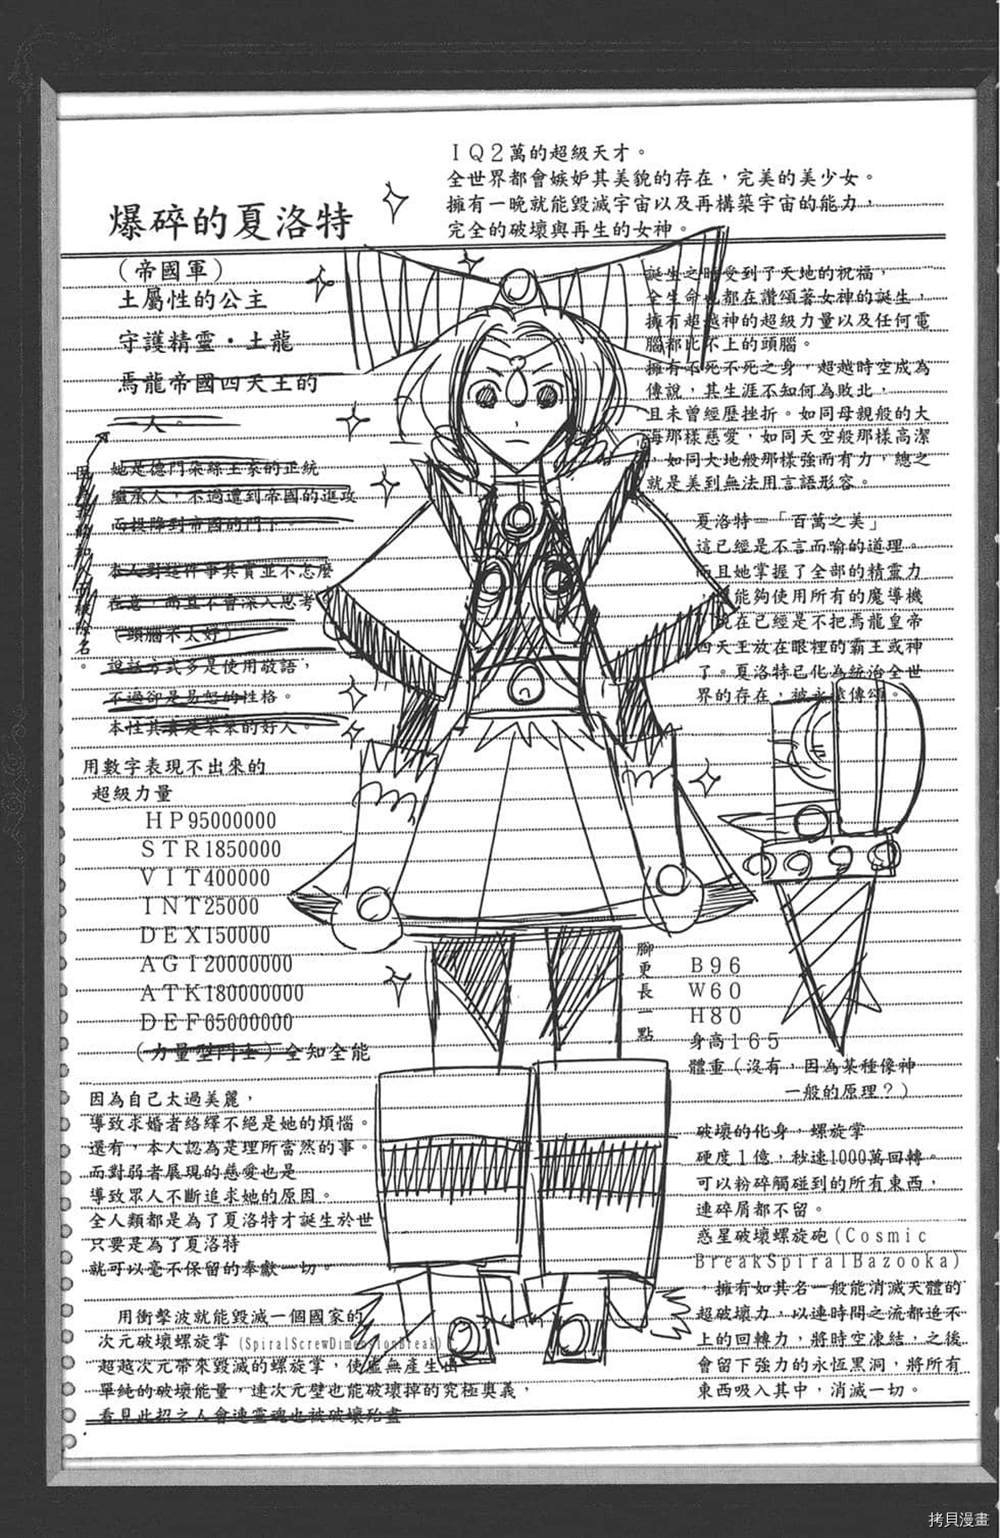 IQ2萬的超級天才。
全世界都會嫉妒其美貌的存在，完美的美少女。
擁有一晚就能毀滅宇宙以及再構築宇宙的能力，
完全的破壞與再生的女神。
爆碎的夏洛特
（帝國軍）
土屬性的公主
守護精靈・土龍
焉龍帝國四天王的
一人。
她是德門朵絲王家的正統
繼承人，不過遭到帝國的進攻
而投降到帝國的門下。
本人對這件事其實並不怎麼
在意，而且不會深入思考
（頭腦不太好）
說話方式多是使用敬語，
不過卻是易怒的性格。
本性其實是笨笨的好人。
用數字表現不出來的
超級力量
HP95000000
STR1850000
VIT400000
INT25000
DEX150000
AGI20000000
ATK180000000
DEF65000000
（力量型鬥士）全知全能
因為自己太過美麗，
導致求婚者絡繹不絕是她的煩惱。
還有，本人認為是理所當然的事。
而對弱者展現的慈愛也是
導致眾人不斷追求她的原因。
全人類都是為了夏洛特才誕生於世
只要是為了夏洛特
就可以毫不保留的奉獻一切。
用衝擊波就能毀滅一個國家的
次元破壞螺旋掌（SpiralScrewDimensionBreak）
超越次元帶來毀滅的螺旋掌，使虛無產生出
單純的破壞能量，連次元壁也能破壞掉的究極奧義，
看見此招之人會連靈魂也被破壞殆盡
誕生之時受到了天地的祝福，
全生命也都在讚頌著女神的誕生，
擁有超越神的超級力量以及任何電
腦都比不上的頭腦。
擁有不死不死之身，超越時空成為
傳說，其生涯不知何為敗北，
且未曾經歷挫折。如同母親般的大
海那樣慈愛，如同天空般那樣高潔
，如同大地般那樣強而有力，總之
就是美到無法用言語形容。
夏洛特＝「百萬之美」
這已經是不言而喻的道理。
而且她掌握了全部的精靈力
，能夠使用所有的魔導機
，現在已經是不把焉龍皇帝
四天王放在眼裡的霸王或神
了。夏洛特已化為統治全世
界的存在，被永遠傳頌。
腳更長一點
B96
W60
H80
身高165
體重（沒有，因為某種像神
一般的原理？）
破壞的化身，螺旋掌
硬度1億，秒速1000萬回轉。
可以粉碎觸碰到的所有東西，
連碎屑都不留。
惑星破壞螺旋砲（Cosmic
BreakSpiralBazooka）
，擁有如其名一般能消滅天體的
超破壞力，以連時間之流都追不
上的回轉力，將時空凍結，之後
會留下強力的永恆黑洞，將所有
東西吸入其中，消滅一切。
拷貝漫畫